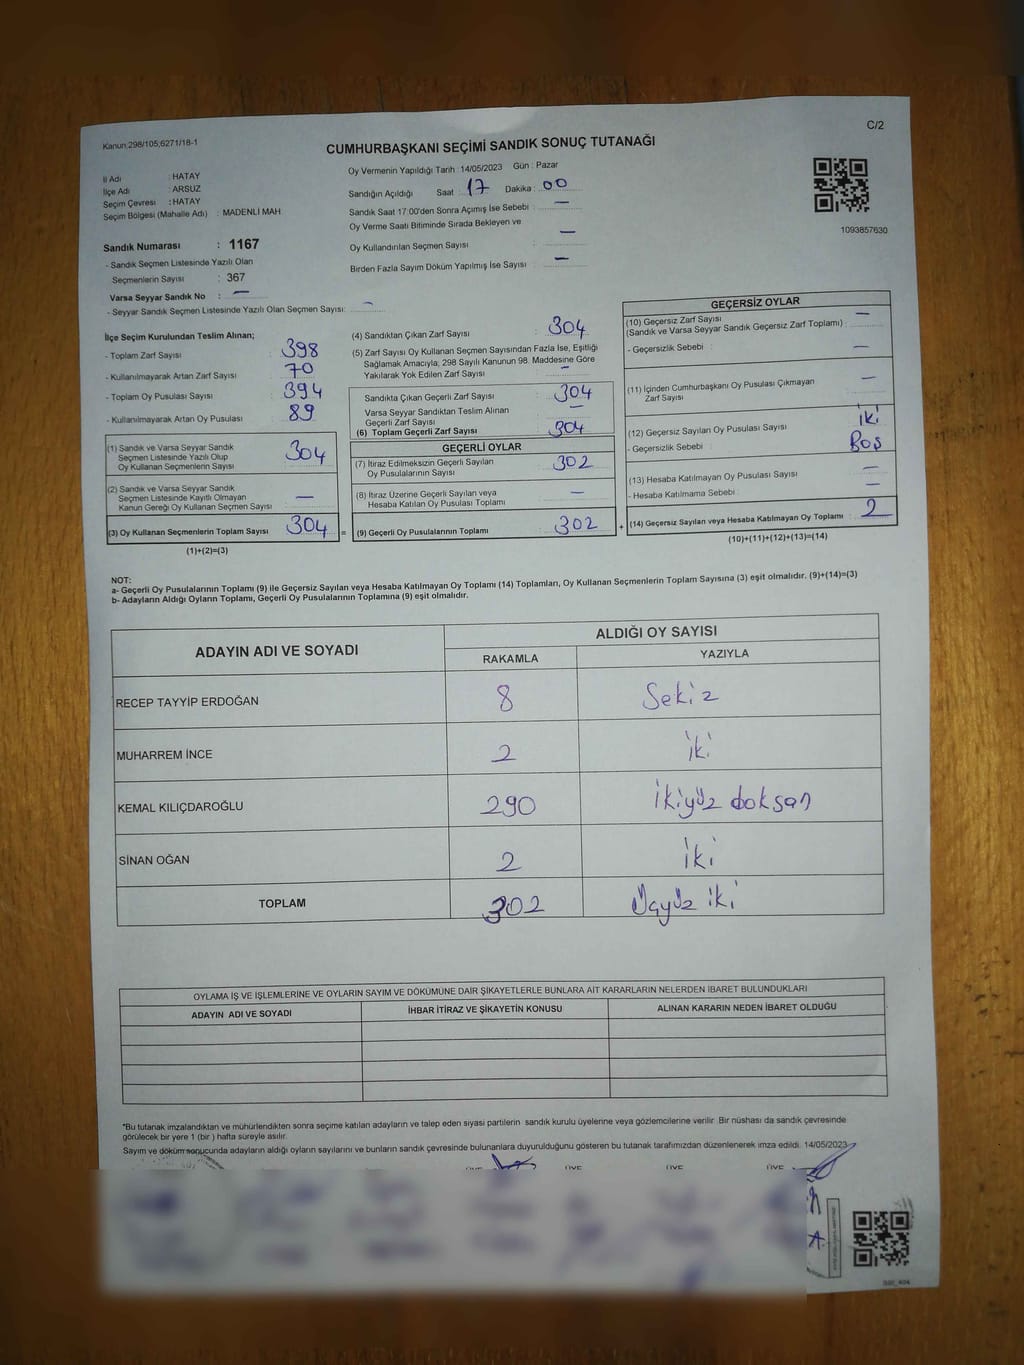 Kanun;298/105;6271/18-1
C/2
CUMHURBAŞKANI SEÇİMİ SANDIK SONUÇ TUTANAĞI
İl Adı : HATAY
İlçe Adı : ARSUZ
Seçim Çevresi : HATAY
Seçim Bölgesi (Mahalle Adı) : MADENLİ MAH
Oy Vermenin Yapıldığı Tarih : 14/05/2023 Gün : Pazar
Sandığın Açıldığı Saat : 17 Dakika : 00
Sandık Saat 17:00'den Sonra Açımış İse Sebebi : —
Oy Verme Saati Bitiminde Sırada Bekleyen ve
Oy Kullandırılan Seçmen Sayısı : —
Birden Fazla Sayım Döküm Yapılmış İse Sayısı : —
1093857630
Sandık Numarası : 1167
- Sandık Seçmen Listesinde Yazılı Olan
Seçmenlerin Sayısı : 367
Varsa Seyyar Sandık No : —
- Seyyar Sandık Seçmen Listesinde Yazılı Olan Seçmen Sayısı: —
İlçe Seçim Kurulundan Teslim Alınan;
- Toplam Zarf Sayısı : 398
- Kullanılmayarak Artan Zarf Sayısı : 70
- Toplam Oy Pusulası Sayısı : 394
- Kullanılmayarak Artan Oy Pusulası : 89
(1) Sandık ve Varsa Seyyar Sandık
Seçmen Listesinde Yazılı Olup
Oy Kullanan Seçmenlerin Sayısı : 304
(2) Sandık ve Varsa Seyyar Sandık
Seçmen Listesinde Kayıtlı Olmayan
Kanun Gereği Oy Kullanan Seçmen Sayısı : —
(3) Oy Kullanan Seçmenlerin Toplam Sayısı : 304 =
(1)+(2)=(3)
(4) Sandıktan Çıkan Zarf Sayısı : 304
(5) Zarf Sayısı Oy Kullanan Seçmen Sayısından Fazla İse, Eşitliği
Sağlamak Amacıyla, 298 Sayılı Kanunun 98. Maddesine Göre
Yakılarak Yok Edilen Zarf Sayısı : —
Sandıkta Çıkan Geçerli Zarf Sayısı : 304
Varsa Seyyar Sandıktan Teslim Alınan
Geçerli Zarf Sayısı : —
(6) Toplam Geçerli Zarf Sayısı : 304
GEÇERLİ OYLAR
(7) İtiraz Edilmeksizin Geçerli Sayılan
Oy Pusulalarının Sayısı : 302
(8) İtiraz Üzerine Geçerli Sayılan veya
Hesaba Katılan Oy Pusulası Toplamı : —
(9) Geçerli Oy Pusulalarının Toplamı : 302 +
GEÇERSİZ OYLAR
(10) Geçersiz Zarf Sayısı
(Sandık ve Varsa Seyyar Sandık Geçersiz Zarf Toplamı) : —
- Geçersizlik Sebebi : —
(11) İçinden Cumhurbaşkanı Oy Pusulası Çıkmayan
Zarf Sayısı : —
(12) Geçersiz Sayılan Oy Pusulası Sayısı : iki
- Geçersizlik Sebebi : Boş
(13) Hesaba Katılmayan Oy Pusulası Sayısı : —
- Hesaba Katılmama Sebebi : —
(14) Geçersiz Sayılan veya Hesaba Katılmayan Oy Toplamı : 2
(10)+(11)+(12)+(13)=(14)
NOT:
a- Geçerli Oy Pusulalarının Toplamı (9) ile Geçersiz Sayılan veya Hesaba Katılmayan Oy Toplamı (14) Toplamları, Oy Kullanan Seçmenlerin Toplam Sayısına (3) eşit olmalıdır. (9)+(14)=(3)
b- Adayların Aldığı Oyların Toplamı, Geçerli Oy Pusulalarının Toplamına (9) eşit olmalıdır.
ADAYIN ADI VE SOYADI
ALDIĞI OY SAYISI
RAKAMLA YAZIYLA
RECEP TAYYİP ERDOĞAN 8 Sekiz
MUHARREM İNCE 2 iki
KEMAL KILIÇDAROĞLU 290 ikiyüz doksan
SİNAN OĞAN 2 iki
TOPLAM 302 Üçyüz iki
OYLAMA İŞ VE İŞLEMLERİNE VE OYLARIN SAYIM VE DÖKÜMÜNE DAİR ŞİKAYETLERLE BUNLARA AİT KARARLARIN NELERDEN İBARET BULUNDUKLARI
ADAYIN ADI VE SOYADI İHBAR İTİRAZ VE ŞİKAYETİN KONUSU ALINAN KARARIN NEDEN İBARET OLDUĞU
*Bu tutanak imzalandıktan ve mühürlendikten sonra seçime katılan adayların ve talep eden siyasi partilerin sandık kurulu üyelerine veya gözlemcilerine verilir. Bir nüshası da sandık çevresinde
görülecek bir yere 1 (bir ) hafta süreyle asılır.
Sayım ve döküm sonucunda adayların aldığı oyların sayılarını ve bunların sandık çevresinde bulunanlara duyurulduğunu gösteren bu tutanak tarafımızdan düzenlenerek imza edildi. 14/05/2023